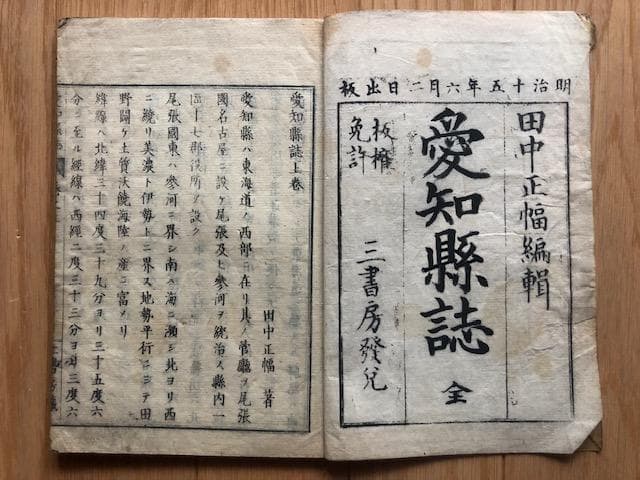 明治十五年六月二日出板
田中正幅編輯
愛知縣誌 全
板權免許
三書房發兌
愛知縣誌上巻
田中正幅 著
愛知縣ハ東海道ノ西部ニ在リ其ノ管廳ヲ尾張
國名古屋ニ設ケ尾張及ヒ參河ヲ統治ス縣内一
區十七郡役所ヲ設ク
尾張國東ハ參河ニ界シ南ハ海ニ瀕シ北ヨリ西
ニ繞リ美濃ト伊勢トニ界ス地勢平衍ニシテ田
野闢ケ土質沃饒海陸ノ産ニ富メリ
緯線ハ北緯三十四度三十九分ヨリ三十五度六
分ニ至ル經線ハ西經二度三十三分ヨリ三度六